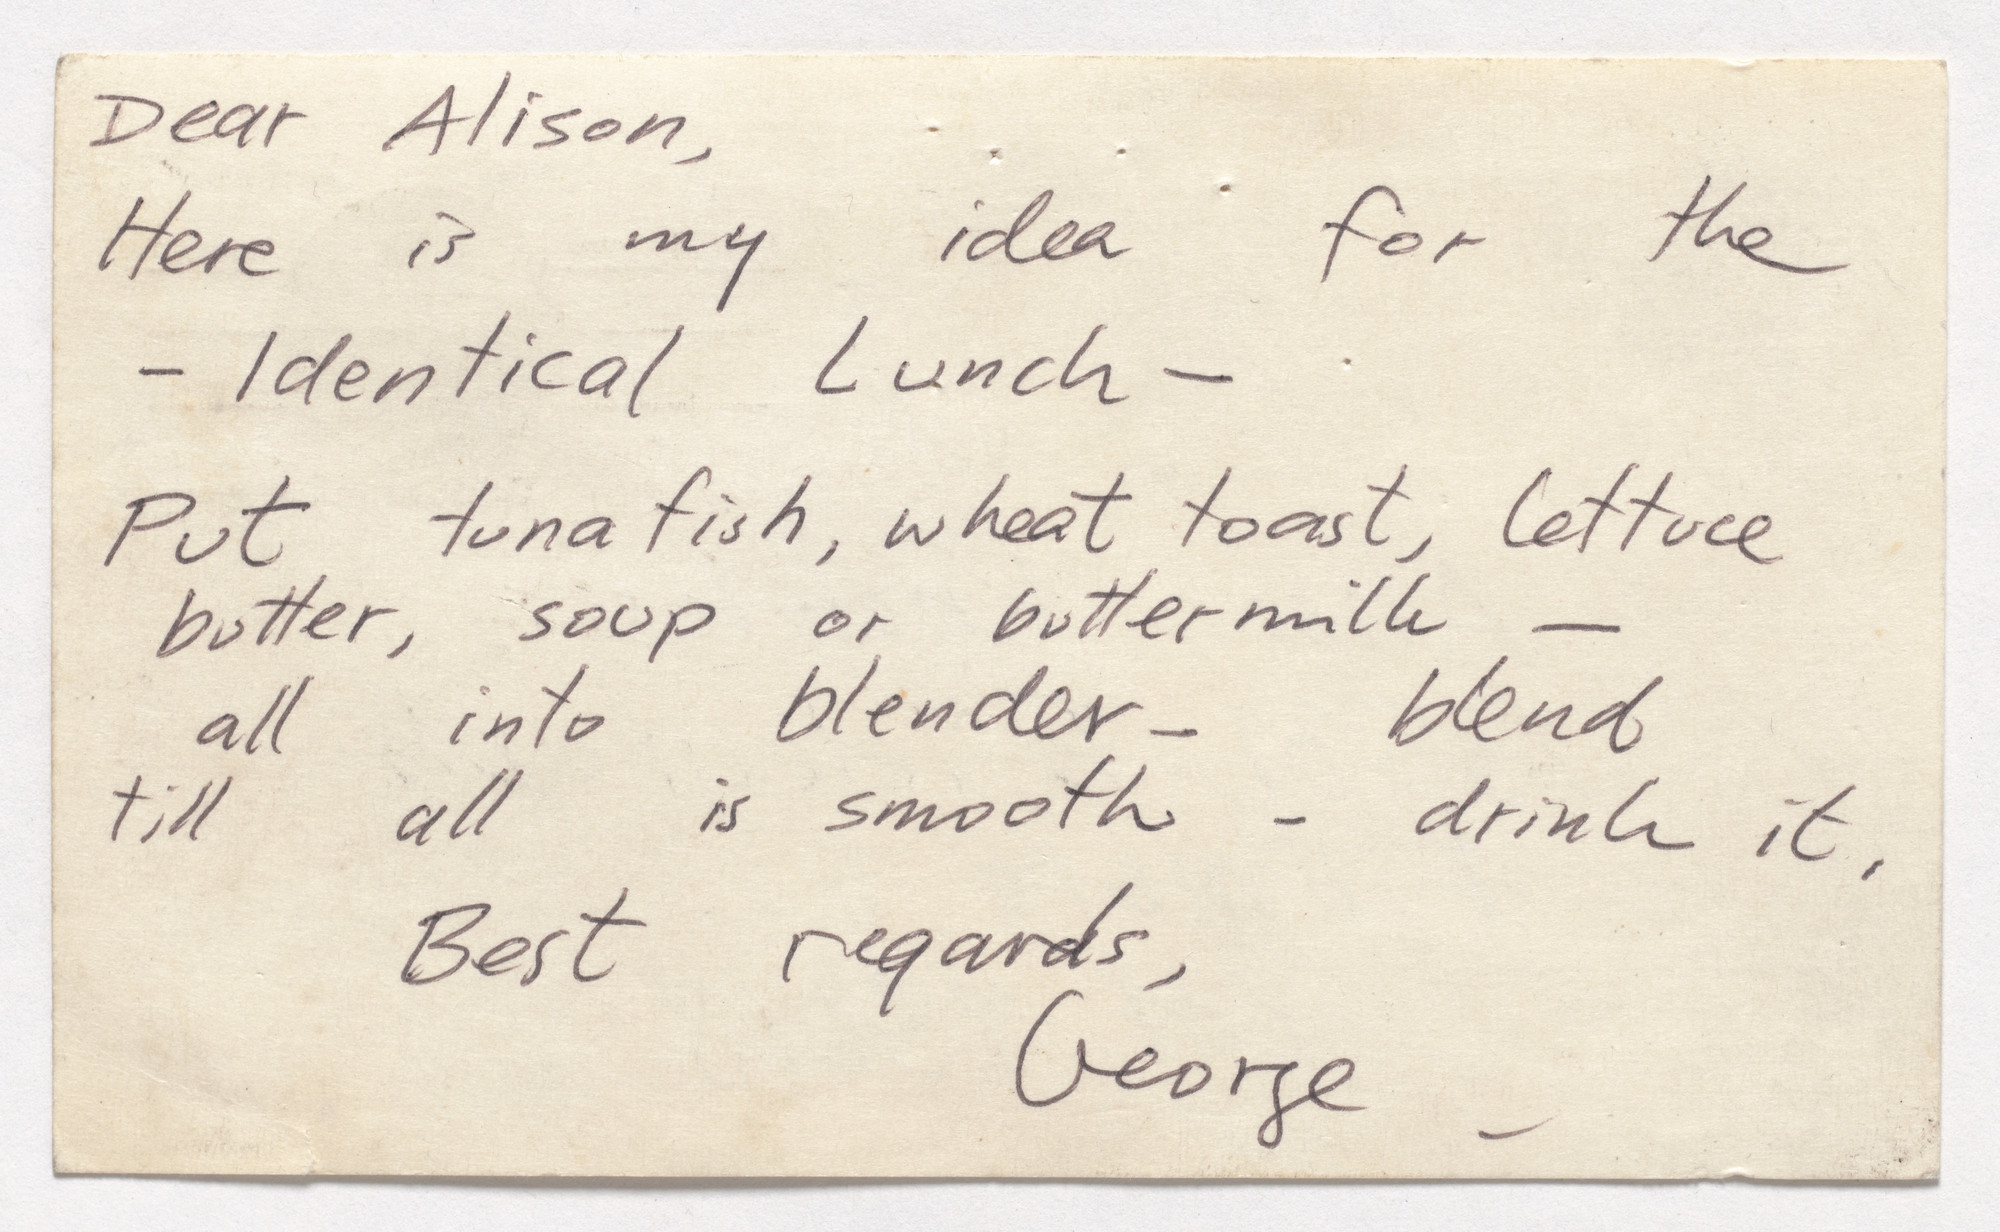 Dear Alison,
Here is my idea for the
- Identical Lunch -
Put tunafish, wheat toast, lettuce
butter, soup or buttermilk -
all into blender - blend
till all is smooth - drink it.
Best regards,
George